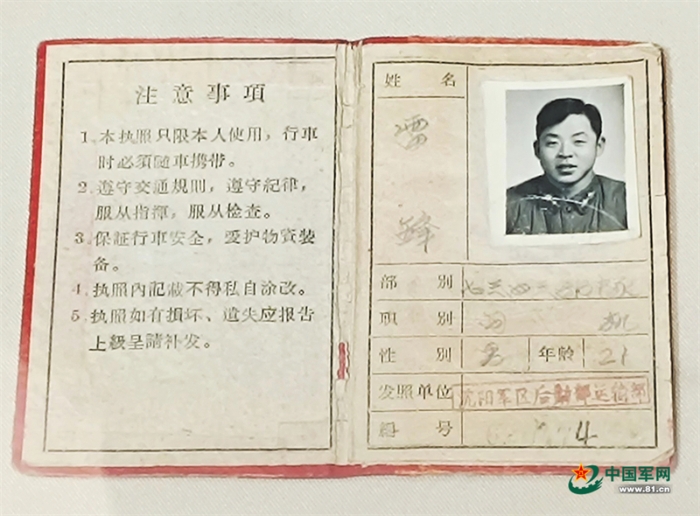 注意事項
1. 本执照只限本人使用，行車
时必须随車携带。
2. 遵守交通規則，遵守紀律，
服从指揮，服从检查。
3. 保証行車安全，爱护物資装
备。
4. 执照內記載不得私自涂改。
5. 执照如有損坏、遺失应报告
上級呈請补发。
姓名
雷
锋
部别
职别 司机
性别 男 年龄 21
发照单位 沈阳军区后勤部运输部
編号 4
中国军网
www.81.cn